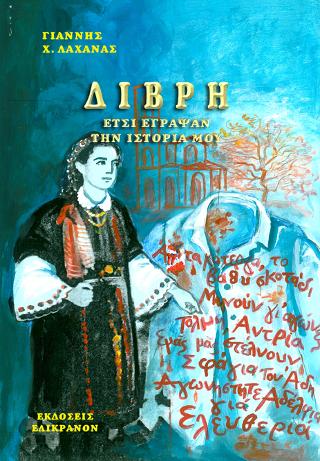 ΓΙΑΝΝΗΣ
Χ. ΛΑΧΑΝΑΣ
ΔΙΒΡΗ
ΕΤΣΙ ΕΓΡΑΨΑΝ
ΤΗΝ ΙΣΤΟΡΙΑ ΜΟΥ
Απ' τα κάτεργα, το
βαθύ σκοτάδι,
Μηνούν γι' αγώνα
Τόλμη, Αντρία
ένας μας στέλνουν
Σφάγια του Άδη
Αγωνηστήτε Αδέλφια
για
Ελευθερία
ΕΚΔΟΣΕΙΣ
ΕΛΙΚΡΑΝΟΝ